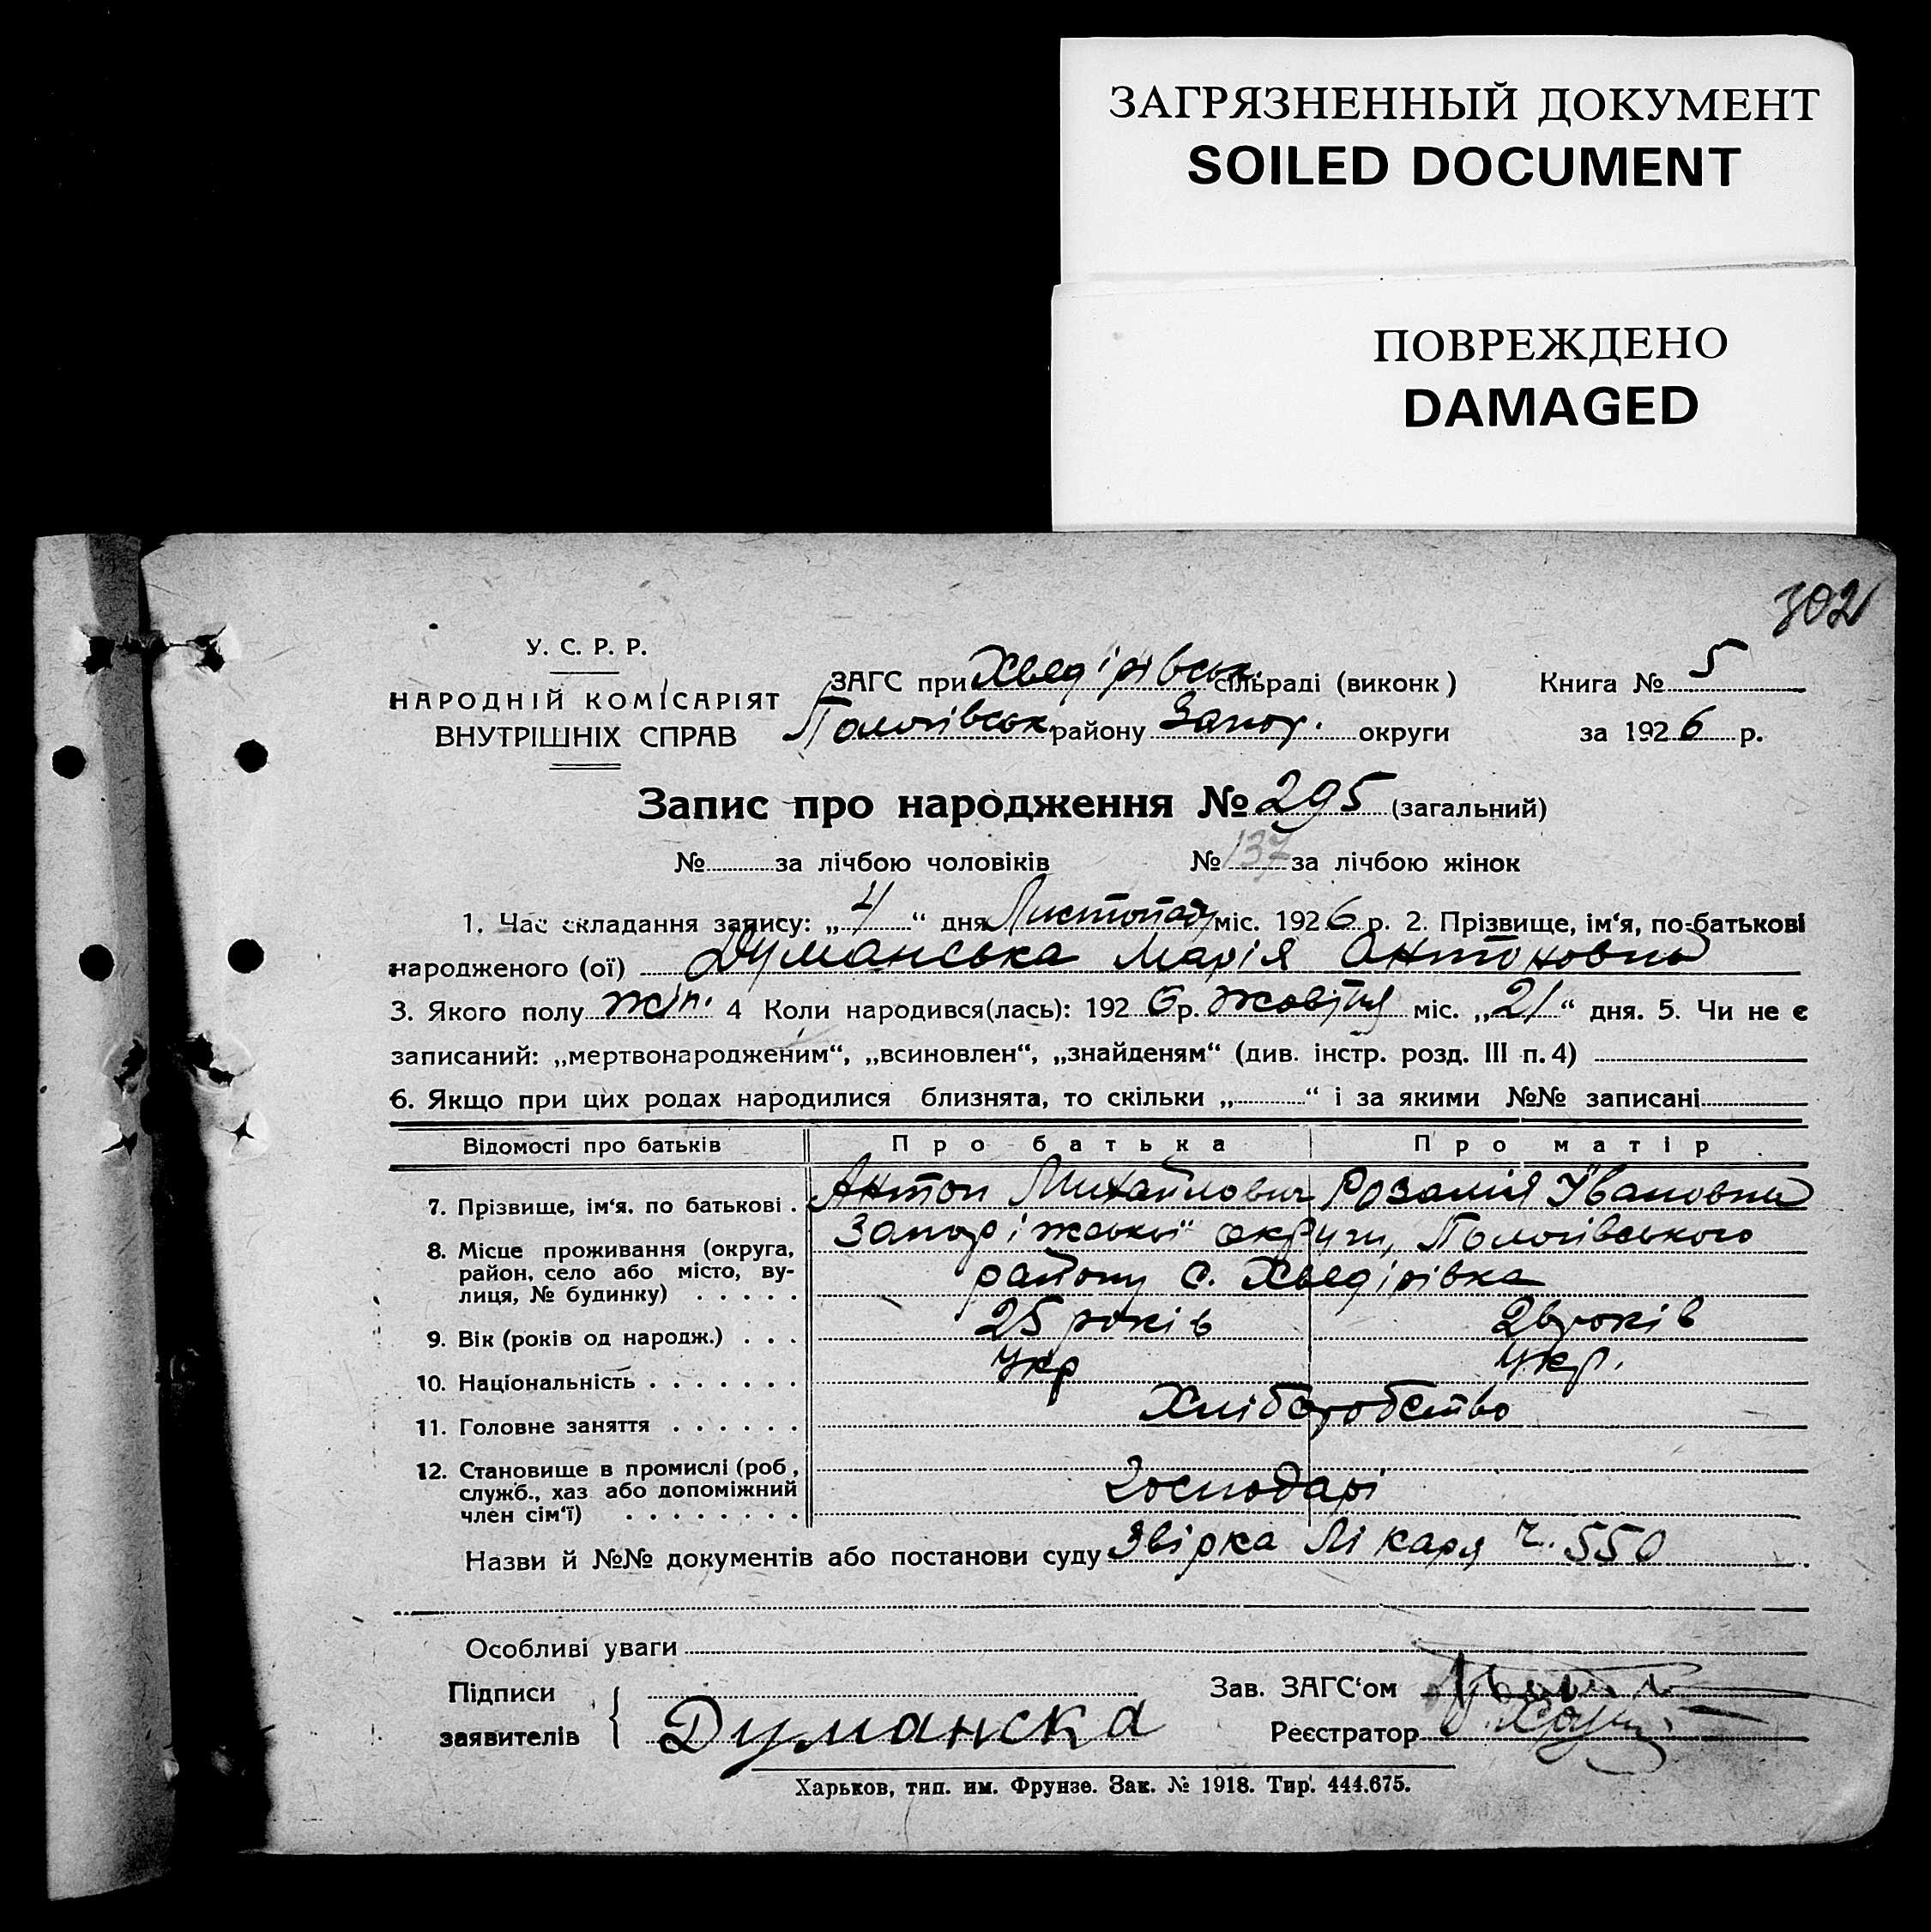 ЗАГРЯЗНЕННЫЙ ДОКУМЕНТ
SOILED DOCUMENT
ПОВРЕЖДЕНО
DAMAGED
302
У. С. Р. Р.
НАРОДНІЙ КОМІСАРІЯТ
ВНУТРІШНІХ СПРАВ
ЗАГС при Хведірівськ. сільраді (виконк) Книга № 5
Пологівськ району Запор. округи за 1926 р.
Запис про народження № 295 (загальний)
№ за лічбою чоловіків № 137 за лічбою жінок
1. Час складання запису: „4“ дня Листопаду міс. 1926 р. 2. Прізвище, ім‘я, по-батькові
народженого (ої) Думанська Марія Антоновна
3. Якого полу жін. 4 Коли народився(лась): 1926 р. Жовтня міс. „21“ дня. 5. Чи не є
записаний: „мертвонародженим“, „всиновлен“, „знайденям“ (див. інстр. розд. III п. 4)
6. Якщо при цих родах народилися близнята, то скільки „ “ і за якими №№ записані
Відомості про батьків Про батька Про матір
7. Прізвище, ім‘я, по батькові . Антон Михайлович Розалія Івановна
8. Місце проживання (округа, район, село або місто, вулиця, № будинку) . . . . . Запоріжської округи, Пологівського
району с. Хведірівка
9. Вік (років од народж.) . . . 25 років 26 років
10. Національність . . . . . . . Укр Укр.
11. Головне заняття . . . . . . Хліборобство
12. Становище в промислі (роб, служб., хаз або допоміжний член сім‘ї) . . . . . . . . Господарі
Назви й №№ документів або постанови суду Звірка Лікаря ч. 550
Особливі уваги
Підписи заявителів Думанска
Зав. ЗАГС‘ом
Реєстратор
Харьков, тип. им. Фрунзе. Зак. № 1918. Тир. 444.675.